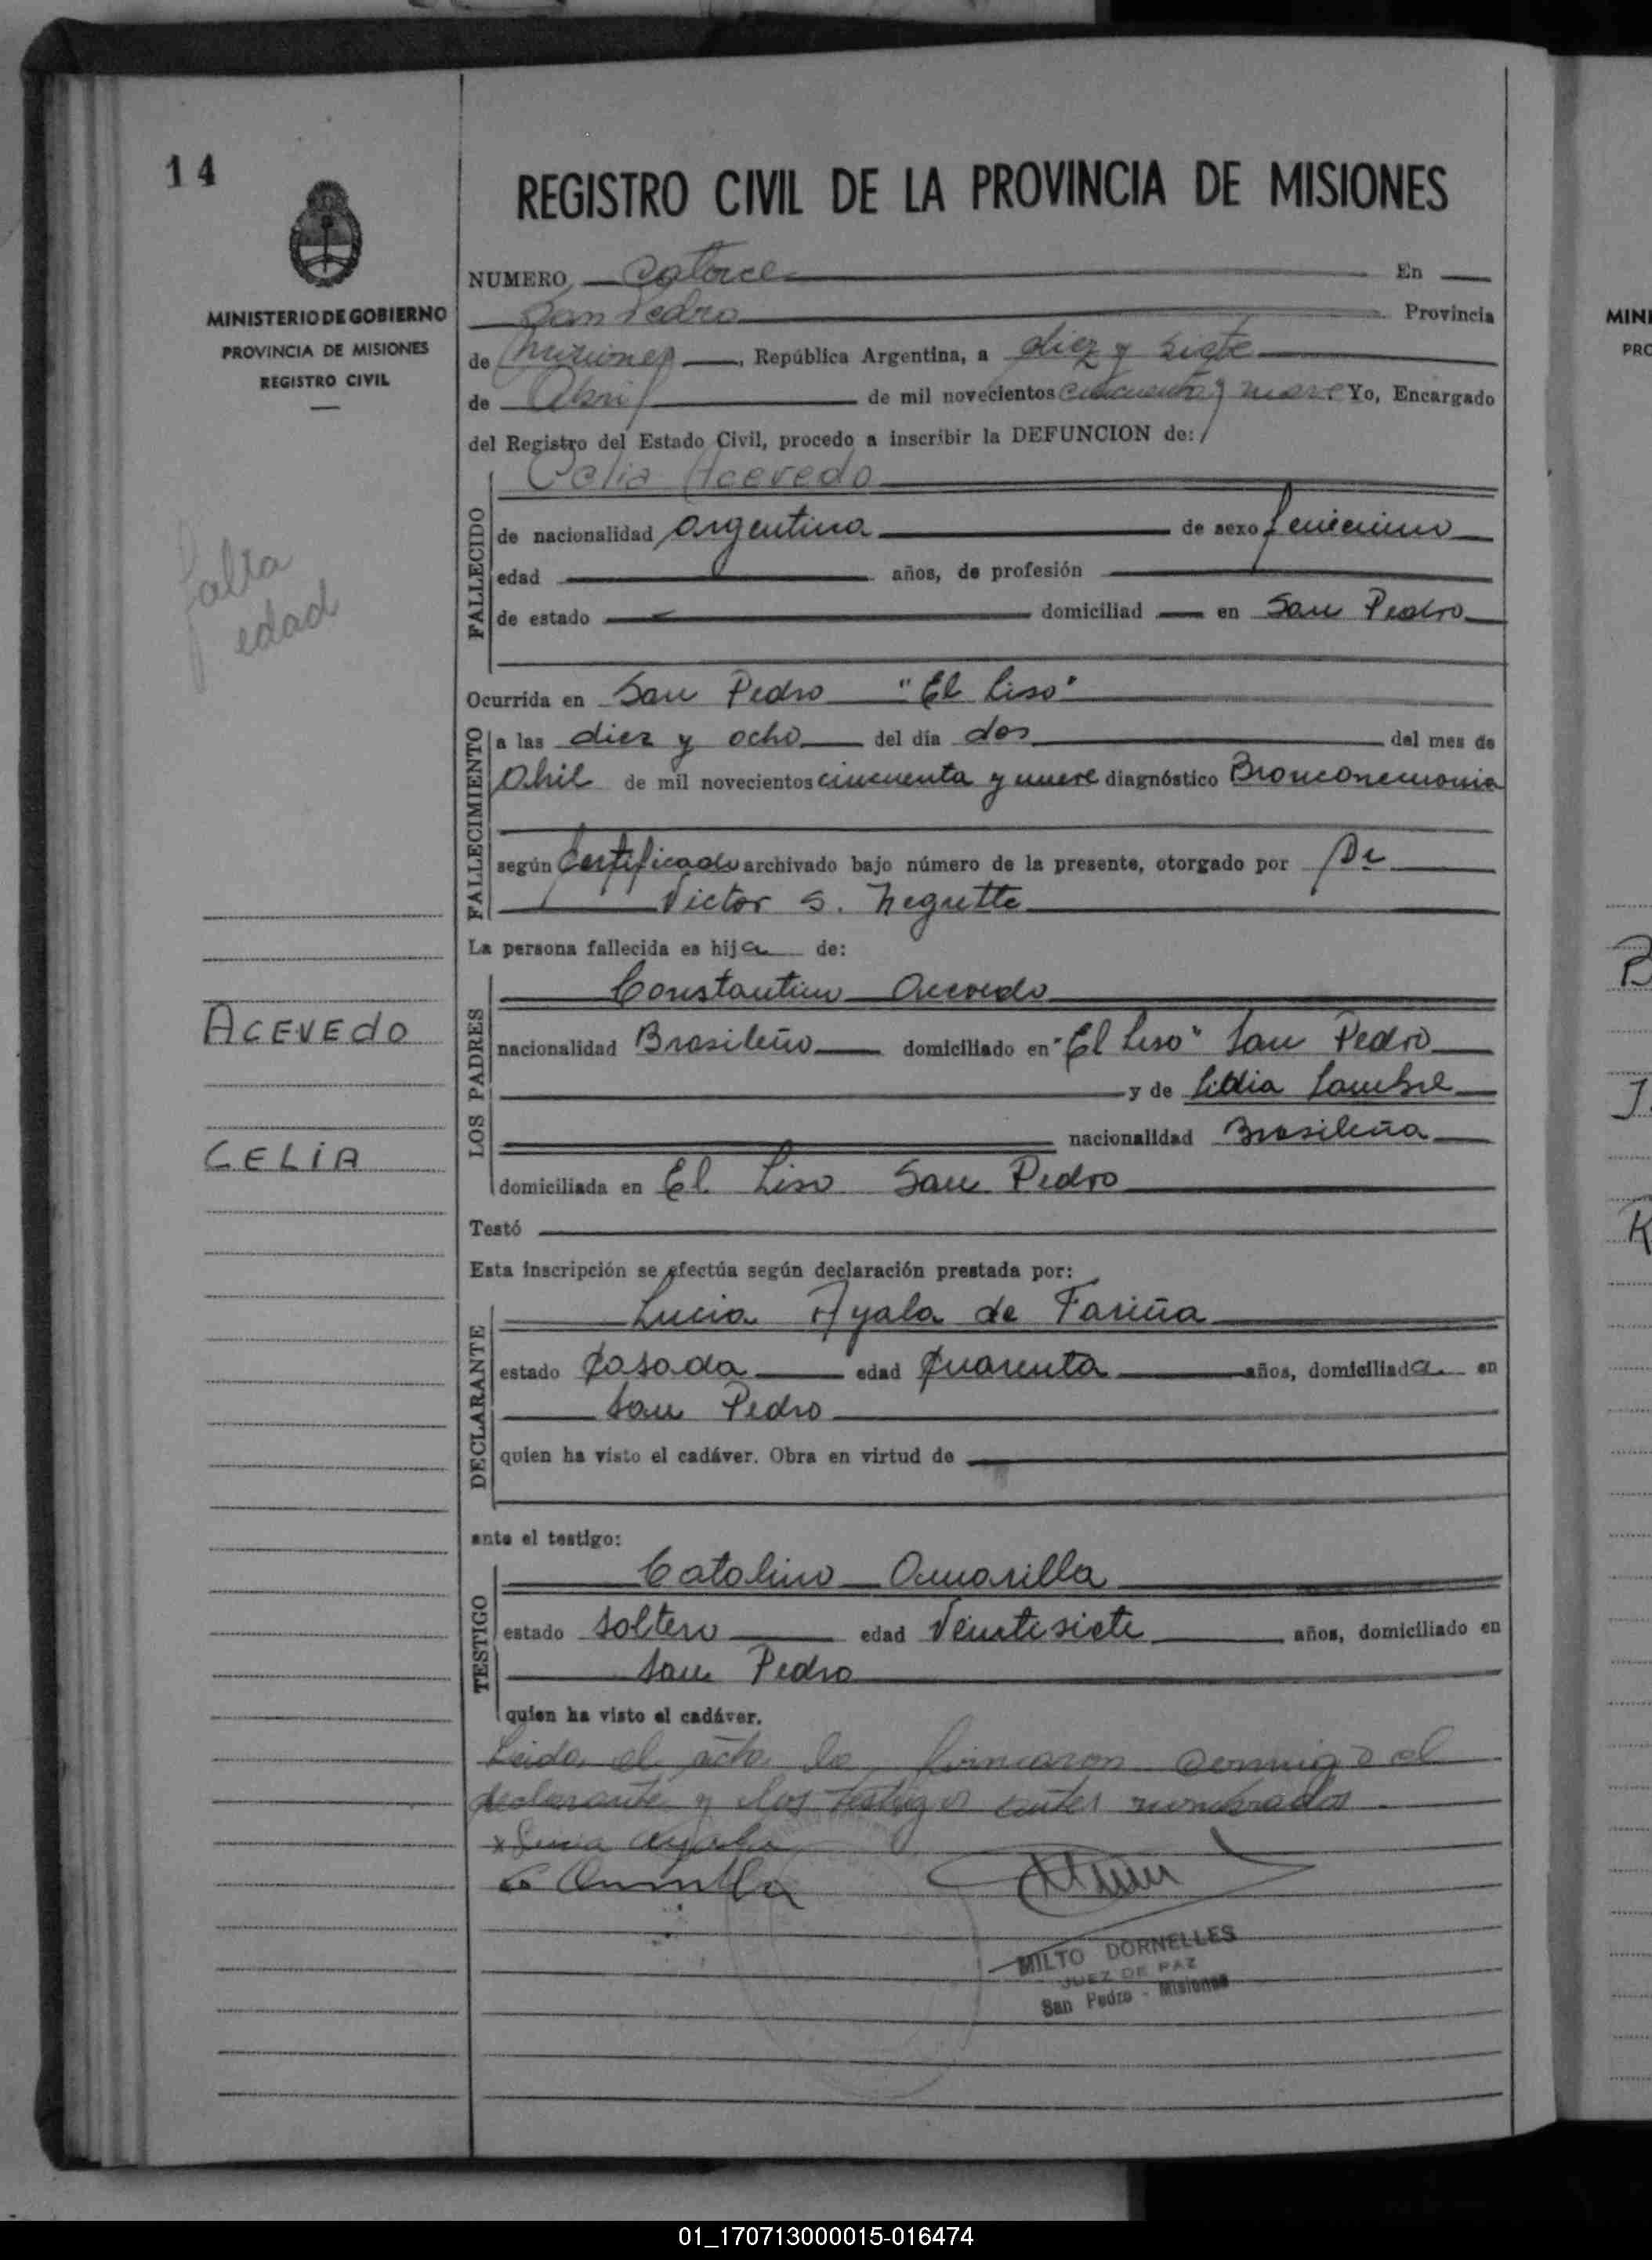 14
REGISTRO CIVIL DE LA PROVINCIA DE MISIONES
MINISTERIO DE GOBIERNO
PROVINCIA DE MISIONES
REGISTRO CIVIL
NUMERO Catorce En
San Pedro Provincia
de Misiones, República Argentina, a diez y siete
de Abril de mil novecientos cincuenta y nueve Yo, Encargado
del Registro del Estado Civil, procedo a inscribir la DEFUNCION de:
Celia Acevedo
FALLECIDO
de nacionalidad argentina de sexo femenino
edad años, de profesión
de estado domiciliad en San Pedro
falta
edad
Ocurrida en San Pedro "El Liso"
FALLECIMIENTO
a las diez y ocho del día dos del mes de
Abril de mil novecientos cincuenta y nueve diagnóstico Bronconeumonia
según Certificado archivado bajo número de la presente, otorgado por Dr
Victor S. Negrette
La persona fallecida es hija de:
LOS PADRES
Constantino Acevedo
nacionalidad Brasileño domiciliado en "El Liso" San Pedro
y de Lidia
nacionalidad Brasileña
domiciliada en El Liso San Pedro
ACEVEDO
CELIA
Testó
Esta inscripción se efectúa según declaración prestada por:
DECLARANTE
Lucia Ayala de Fariña
estado Casada edad Cuarenta años, domiciliada en
San Pedro
quien ha visto el cadáver. Obra en virtud de
ante el testigo:
TESTIGO
Catalino Amarilla
estado soltero edad Veintisiete años, domiciliado en
San Pedro
quien ha visto el cadáver.
Leida el acta la firmaron conmigo el
declarante y los testigos antes nombrados
x Lucia Ayala
C Amarilla
MILTO DORNELLES
JUEZ DE PAZ
San Pedro - Misiones
MINI
PRO
01_170713000015-016474